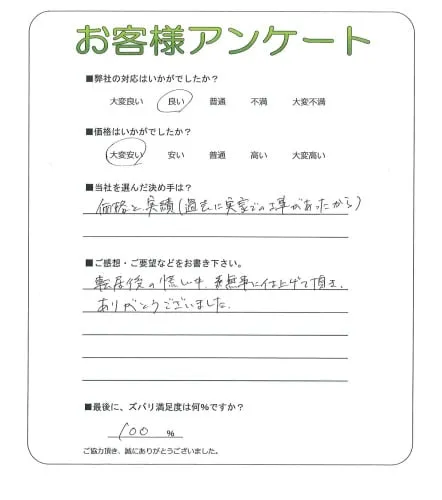 お客様アンケート
■弊社の対応はいかがでしたか?
大変良い 良い 普通 不満 大変不満
■価格はいかがでしたか?
大変安い 安い 普通 高い 大変高い
■当社を選んだ決め手は?
価格と実績(過去に実家での工事があったから)
■ご感想・ご要望などをお書き下さい。
転居後の慌しい中、無事に仕上げて頂き、
ありがとうございました。
■最後に、ズバリ満足度は何%ですか?
100 %
ご協力頂き、誠にありがとうございました。